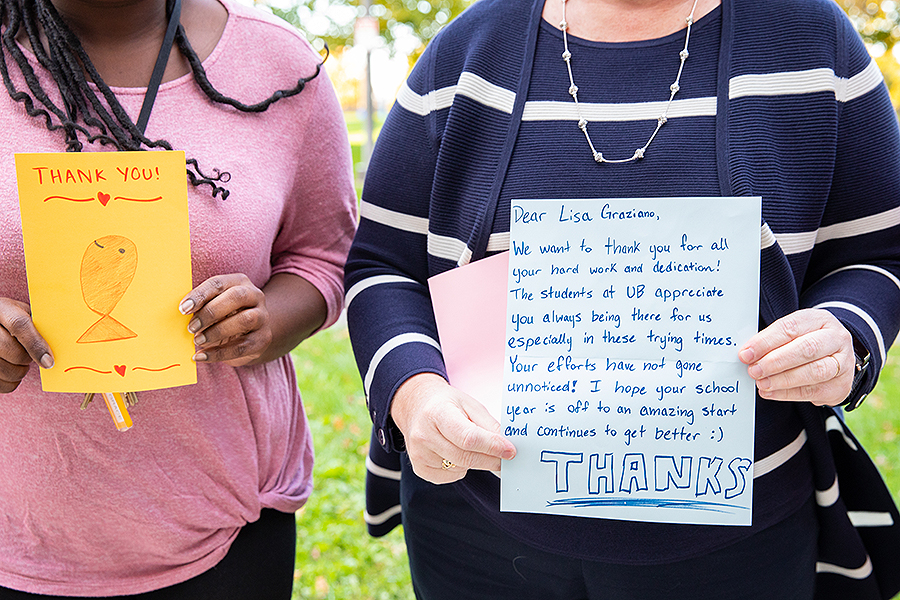 THANK YOU!
Dear Lisa Graziano,
We want to thank you for all
your hard work and dedication!
The students at UB appreciate
you always being there for us
especially in these trying times.
Your efforts have not gone
unnoticed! I hope your school
year is off to an amazing start
and continues to get better :)
THANKS